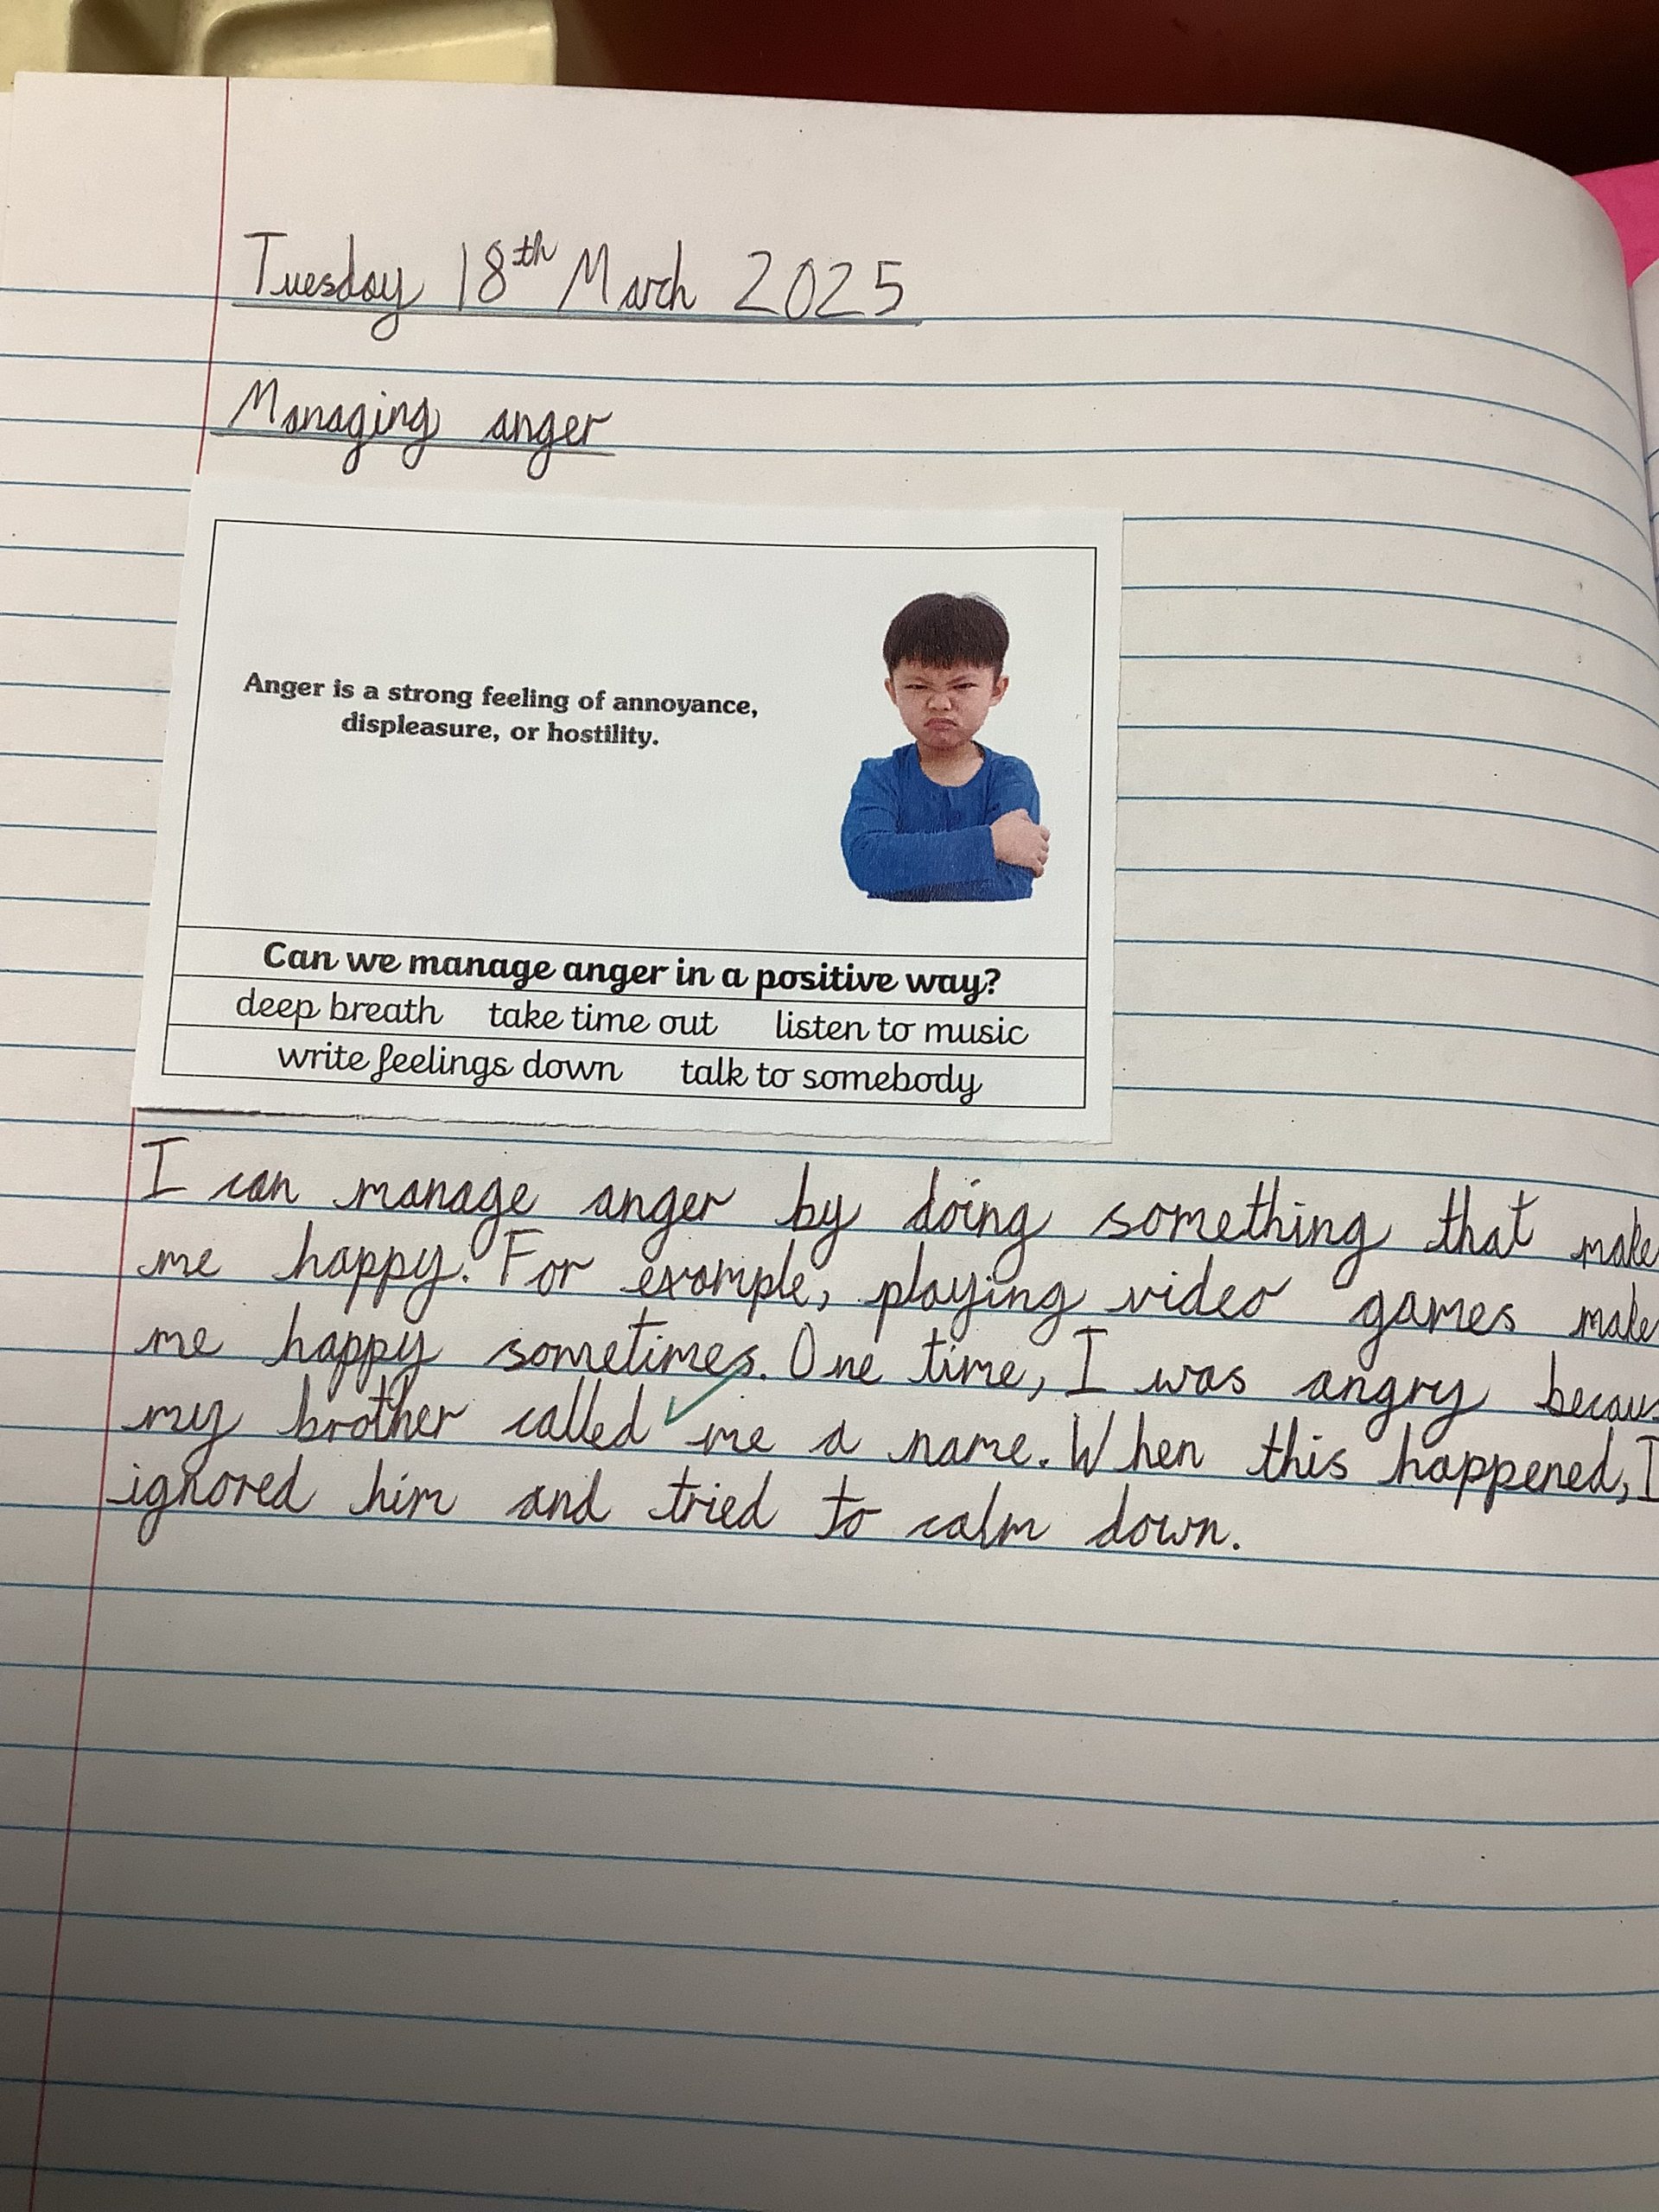 Tuesday 18th March 2025
Managing anger
Anger is a strong feeling of annoyance,
displeasure, or hostility.
Can we manage anger in a positive way?
deep breath take time out listen to music
write feelings down talk to somebody
I can manage anger by doing something that make
me happy. For example, playing video games make
me happy sometimes. One time, I was angry becaus
my brother called me a name. When this happened, I
ignored him and tried to calm down.